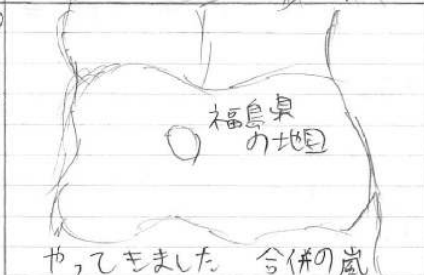 福島県
の地図
やってきました 合併の嵐